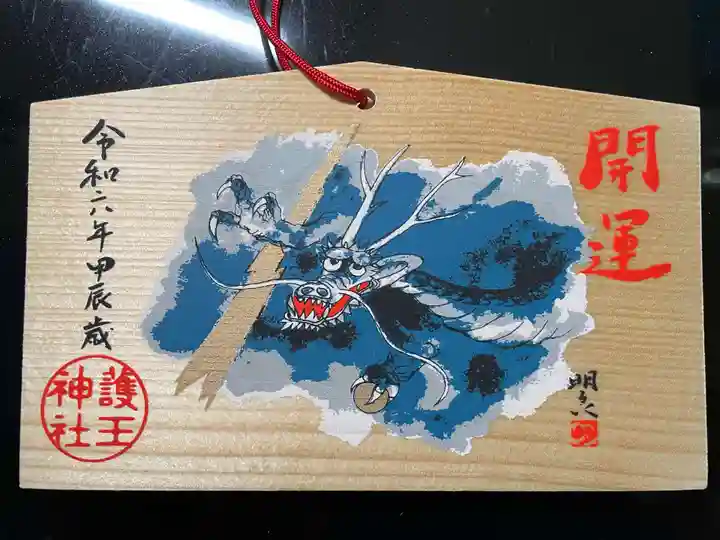 開運
令和六年甲辰歳
護王
神社